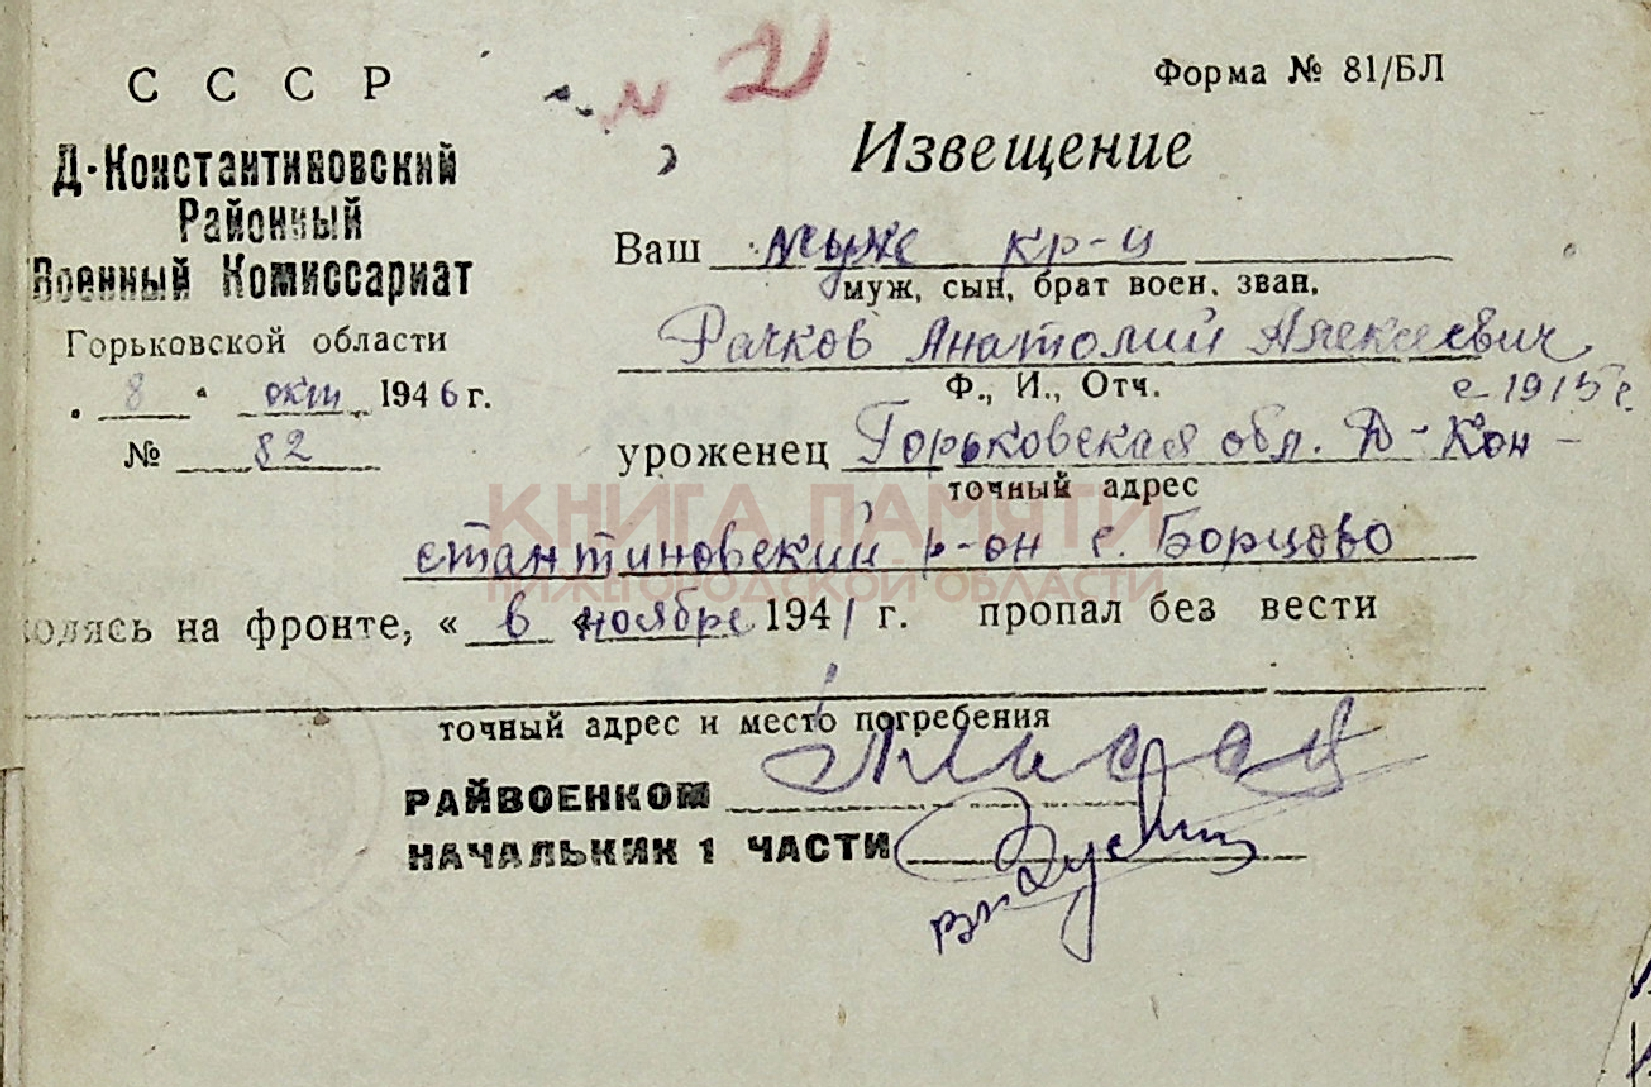 № 21
СССР
Форма № 81/БЛ
Д-Константиновский
Районный
Военный Комиссариат
Горьковской области
8 окт 1946 г.
№ 82
Извещение
Ваш муж кр-ц
муж, сын, брат воен. зван.
Рачков Анатолий Алексеевич
Ф., И., Отч. с 1915 г.
уроженец Горьковская обл. Д-Кон-
точный адрес
стантиновский р-он с. Борцово
КНИГА ПАМЯТИ
НИЖЕГОРОДСКОЙ ОБЛАСТИ
ходясь на фронте, « в « ноябре 1941 г. пропал без вести
точный адрес и место погребения
РАЙВОЕНКОМ
НАЧАЛЬНИК 1 ЧАСТИ